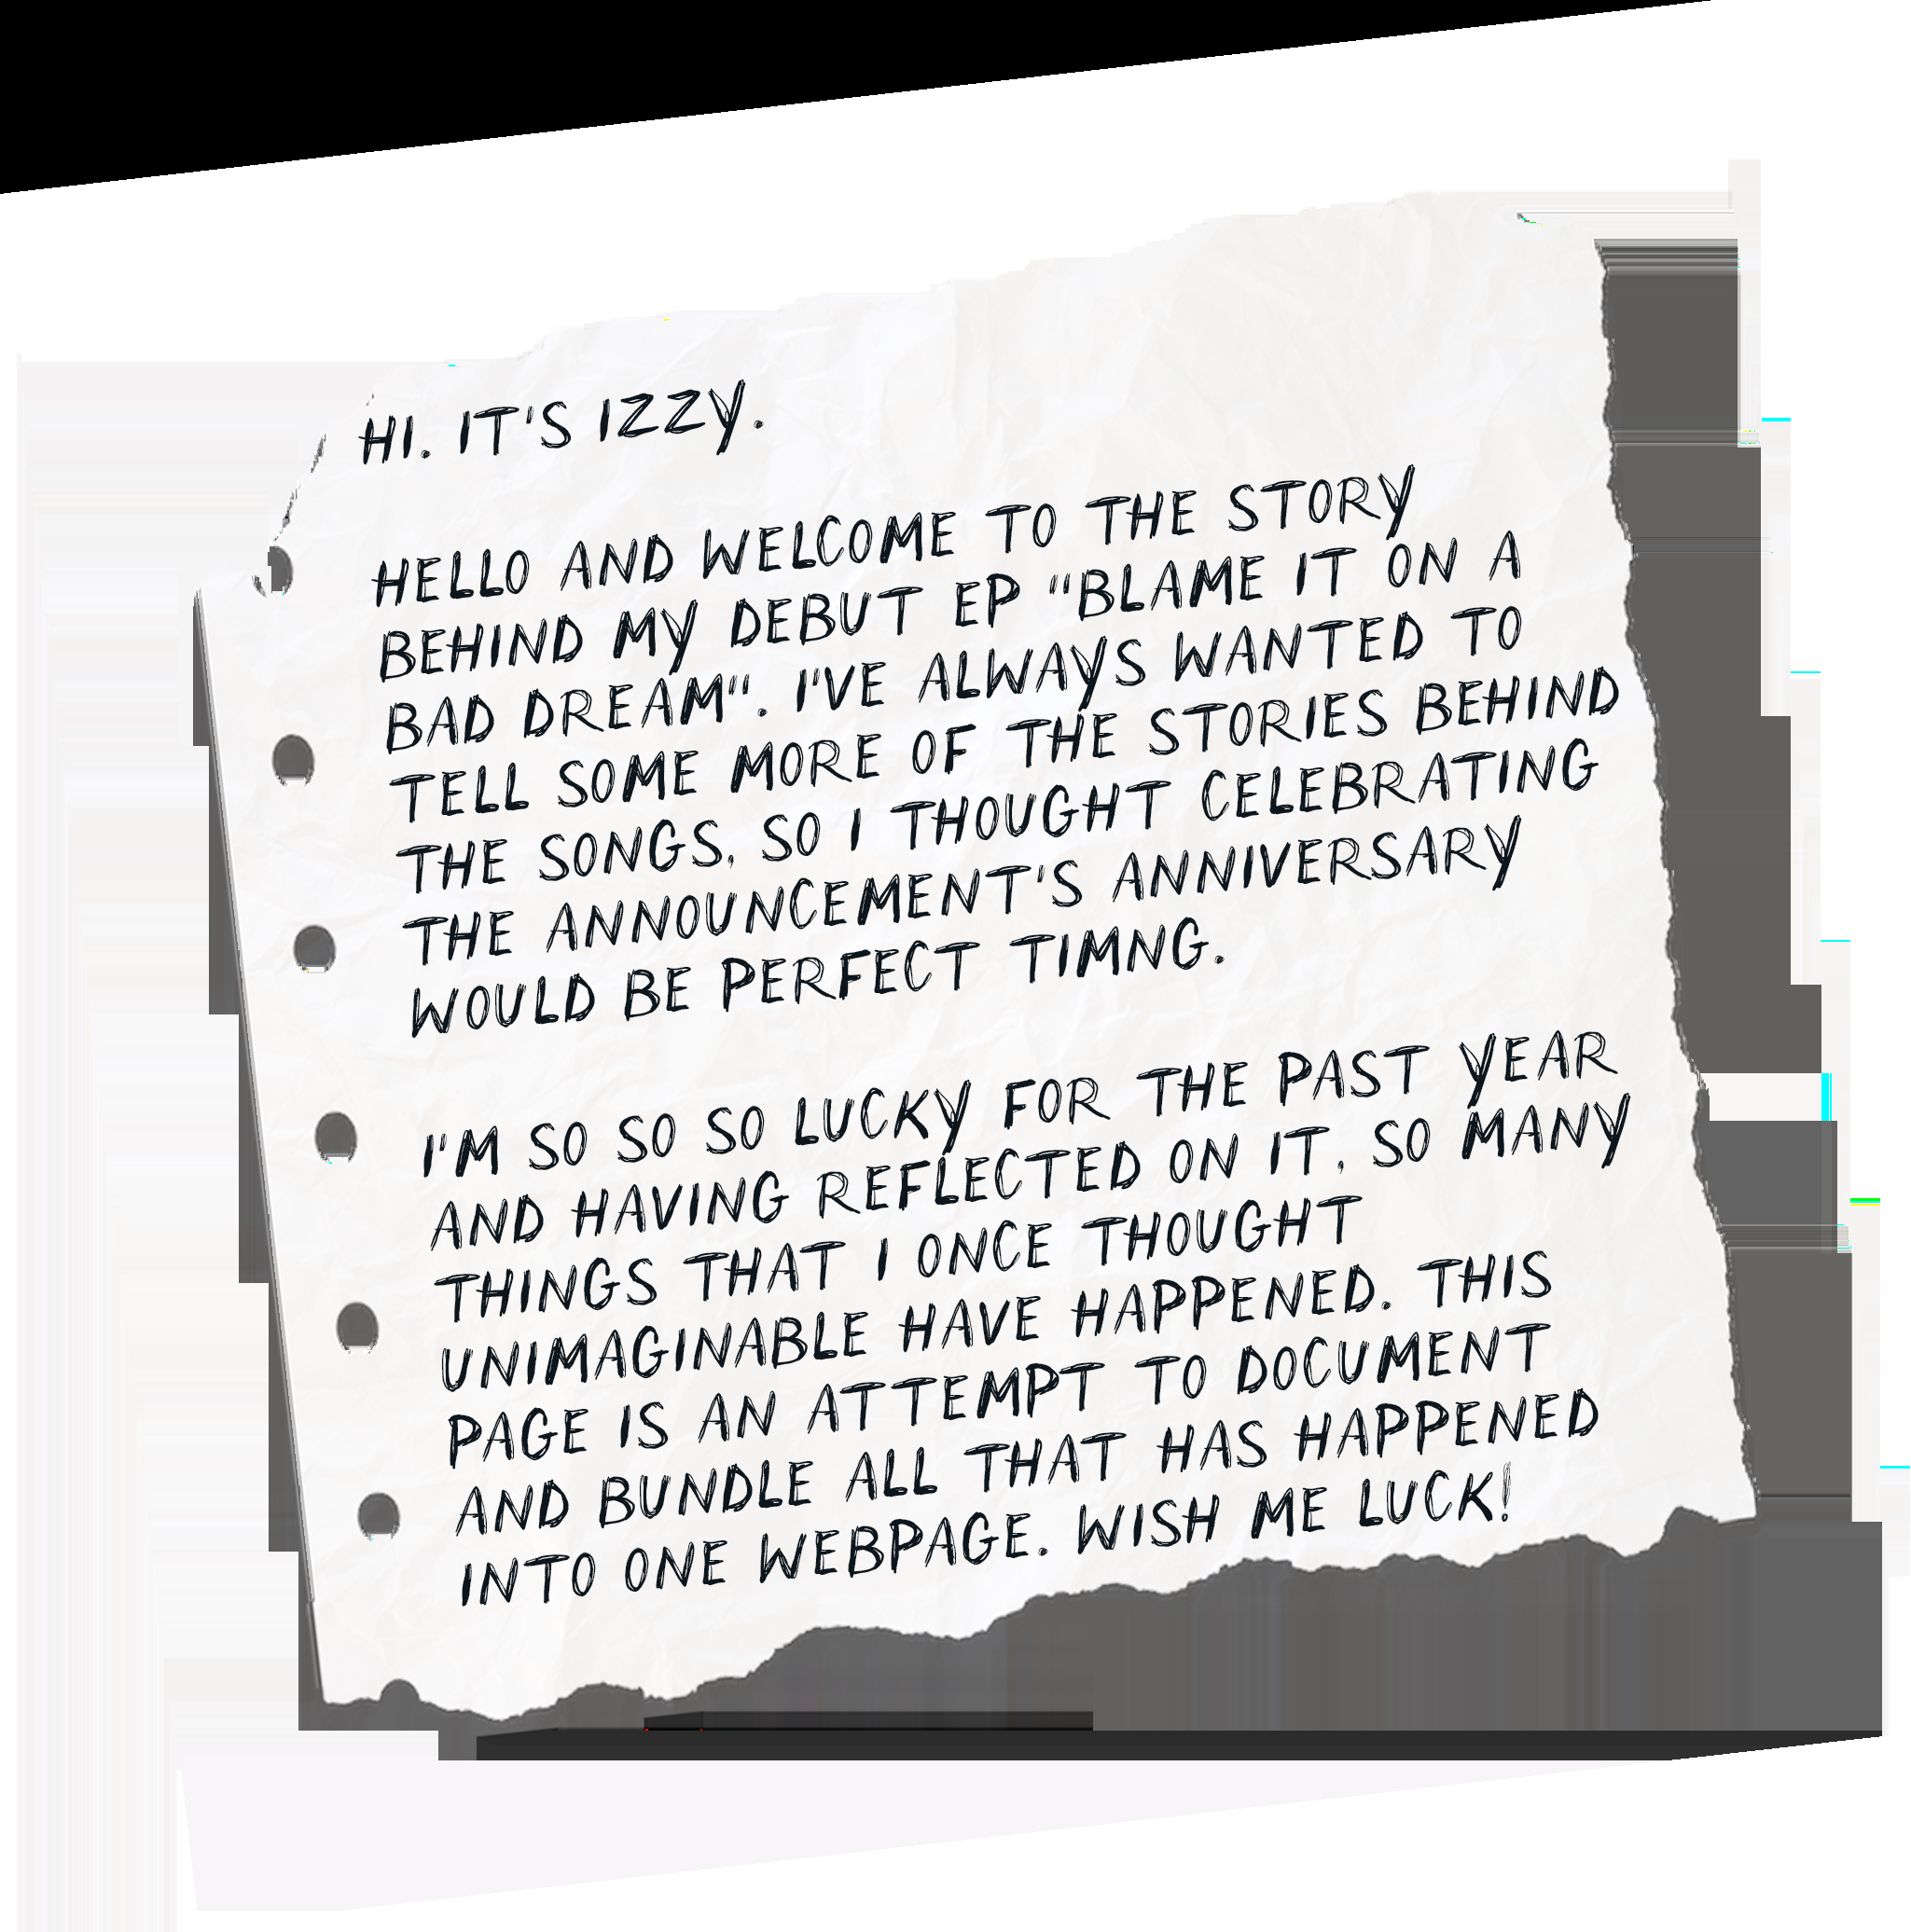 HI. IT'S IZZY.
HELLO AND WELCOME TO THE STORY
BEHIND MY DEBUT EP "BLAME IT ON A
BAD DREAM". I'VE ALWAYS WANTED TO
TELL SOME MORE OF THE STORIES BEHIND
THE SONGS, SO I THOUGHT CELEBRATING
THE ANNOUNCEMENT'S ANNIVERSARY
WOULD BE PERFECT TIMNG.
I'M SO SO SO LUCKY FOR THE PAST YEAR
AND HAVING REFLECTED ON IT, SO MANY
THINGS THAT I ONCE THOUGHT
UNIMAGINABLE HAVE HAPPENED. THIS
PAGE IS AN ATTEMPT TO DOCUMENT
AND BUNDLE ALL THAT HAS HAPPENED
INTO ONE WEBPAGE. WISH ME LUCK!